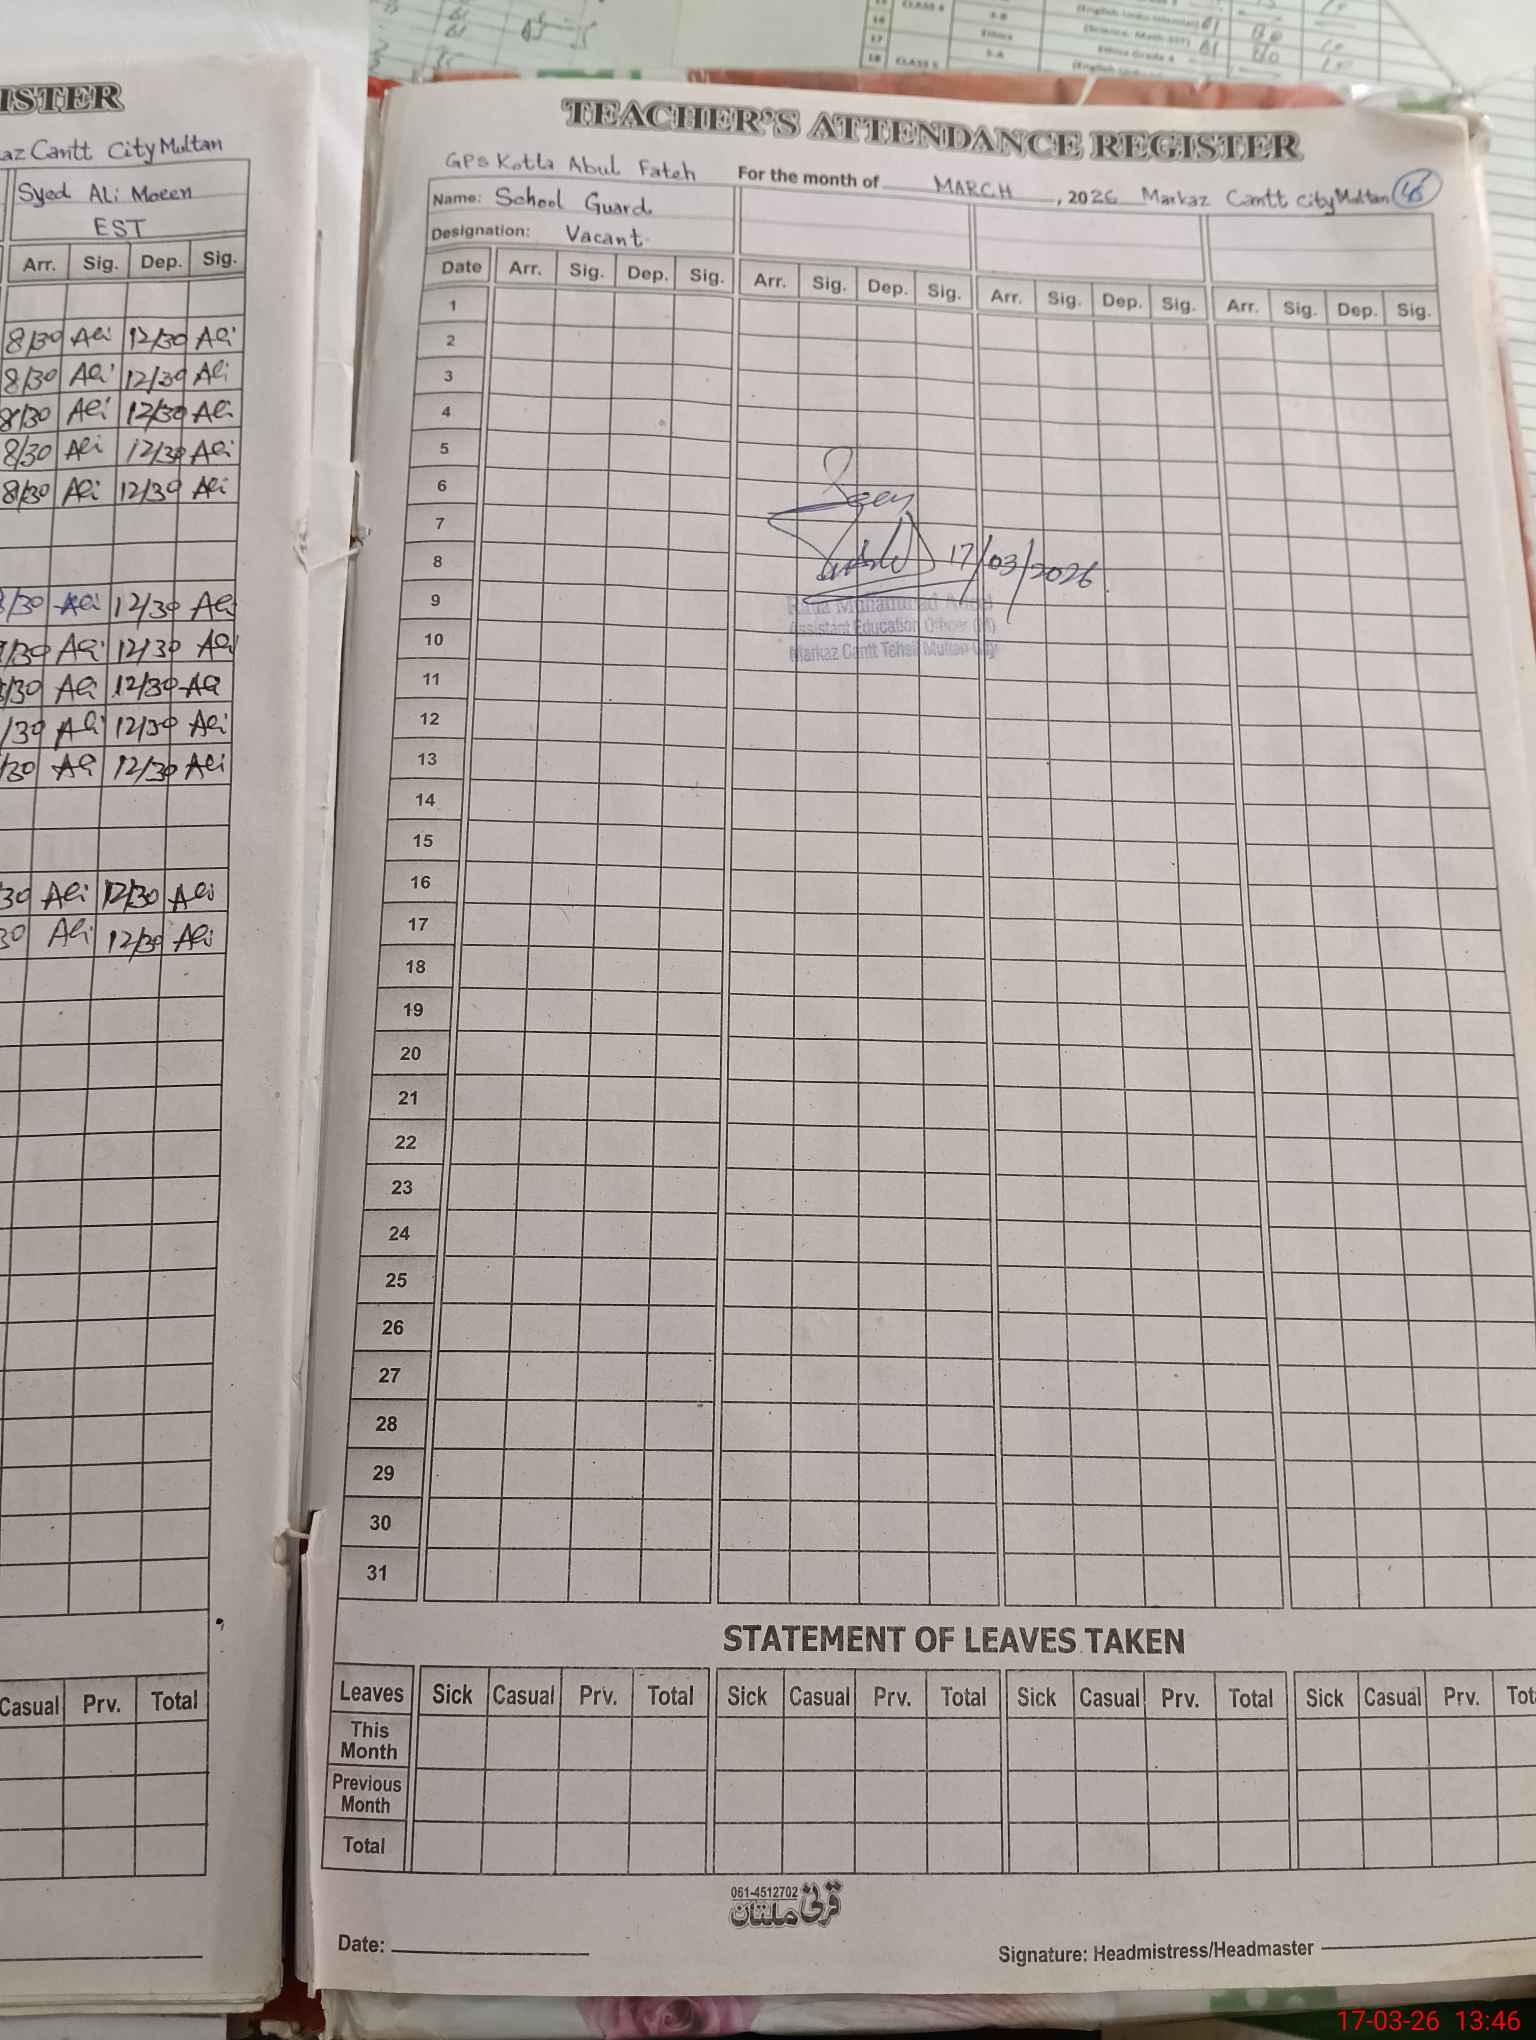 ISTER
az Cantt City Multan
Syed Ali Moeen
EST
Arr. Sig. Dep. Sig.
8/30 Ali 12/30 Ali
8/30 Ali 12/30 Ali
8/30 Ali 12/30 Ali
8/30 Ali 12/30 Ali
8/30 Ali 12/30 Ali
/30 Ali 12/30 Ali
/30 Ali 12/30 Ali
/30 Ali 12/30 Ali
/30 Ali 12/30 Ali
/30 Ali 12/30 Ali
30 Ali 12/30 Ali
30 Ali 12/30 Ali
Casual Prv. Total
TEACHER'S ATTENDANCE REGISTER
GPS Kotla Abul Fateh For the month of MARCH, 2026 Markaz Cantt City Multan
Name: School Guard
Designation: Vacant
Date Arr. Sig. Dep. Sig. Arr. Sig. Dep. Sig. Arr. Sig. Dep. Sig. Arr. Sig. Dep. Sig.
1
2
3
4
5
6
Seen
7
8
17/03/2026
9
Rana Muhammad
10
Assistant Education Officer (M)
Markaz Cantt Tehsil Multan City
11
12
13
14
15
16
17
18
19
20
21
22
23
24
25
26
27
28
29
30
31
STATEMENT OF LEAVES TAKEN
Leaves Sick Casual Prv. Total Sick Casual Prv. Total Sick Casual Prv. Total Sick Casual Prv. Tot
This Month
Previous Month
Total
061-4512702
قرنی ملتان
Date:
Signature: Headmistress/Headmaster
17-03-26 13:46